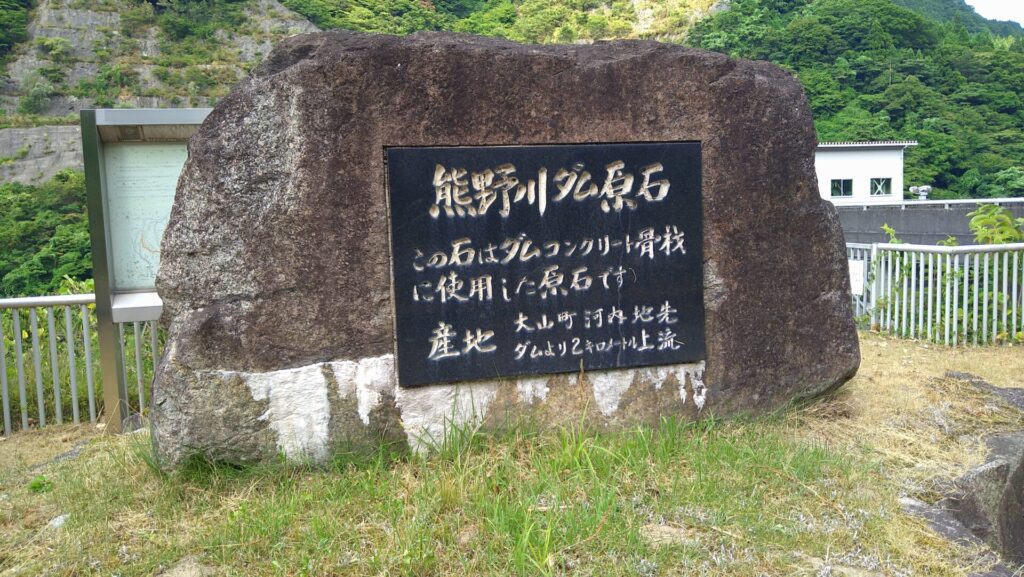 熊野川ダム原石
この石はダムコンクリート骨材
に使用した原石です
産地 大山町 河内 地先
ダムより2キロメートル上流